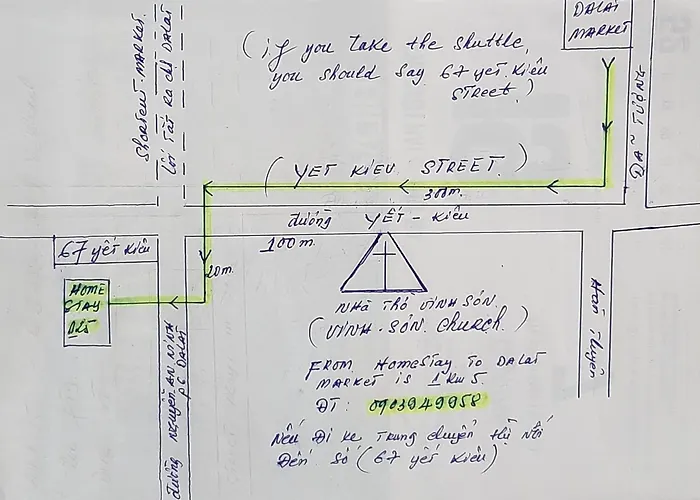 DALAT
MARKET
(if you take the shuttle,
you should say 67 yết Kiêu
street.)
Shortcut - MARKET.
Lối Tắt Ra chợ DALAT
(YET KIEU STREET.)
300m.
đường YẾT - Kiêu
100m.
67 yết Kiêu
20m.
HOME
STAY
Hàn Thuyên
NHà THờ VINH SƠN.
(VINH - SƠN. Church.)
FROM HomeStay To DALAT
MARKET is 1 km 5.
ĐT: 0903949958
đường NGUYỄN AN NINH
P6 DALAT
Nếu Đi xe Trung chuyển thì Nói
Đến Số (67 yết Kiêu)